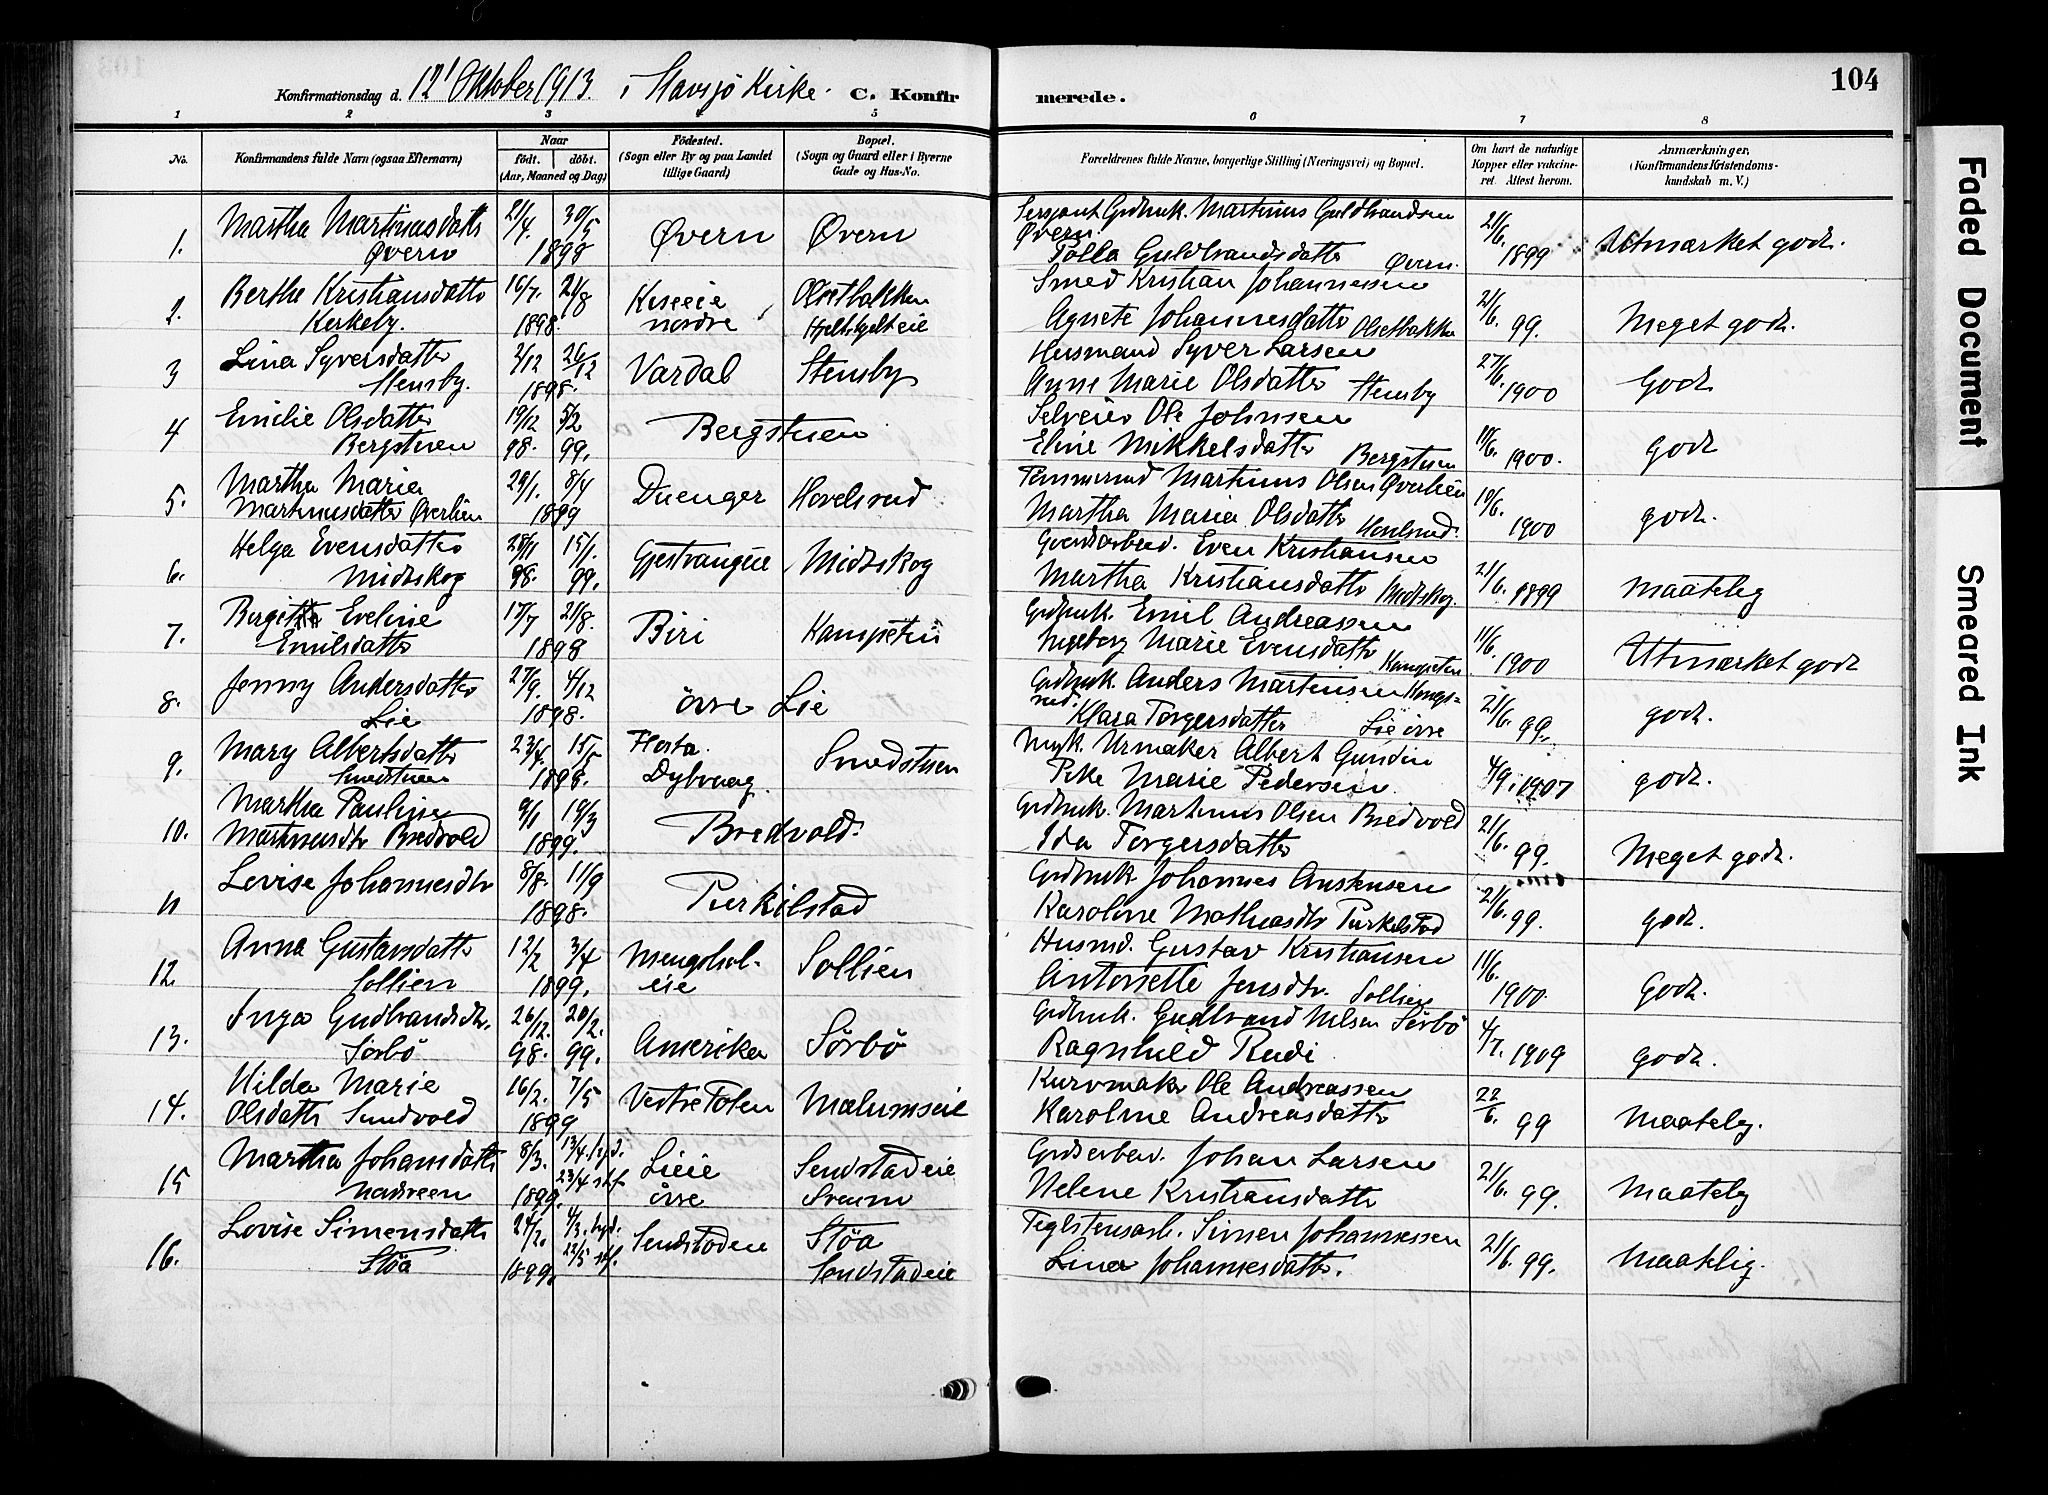 104
Konfirmationsdag d. 12' Oktober 1913 i Stavsjö Kirke. C. Konfirmerede.
1 2 3 4 5 6 7 8
No.
Konfirmandens fulde Navn (ogsaa Efternavn)
Naar
født. døbt.
(Aar, Maaned og Dag)
Födested.
(Sogn eller By og paa Landet tillige Gaard)
Bopæl.
(Sogn og Gaard eller i Byerne Gade og Hus-No.
Forældrenes fulde Navne, borgerlige Stilling (Næringsvei) og Bopæl.
Om havt de naturlige Kopper eller vakcineret. Attest herom.
Anmærkninger,
(Konfirmandens Kristendomskundskab m. V.)
1. Martha Martinusdattr Øvern 21/4. 30/5 1898 Øvern Øvern
Sersjant Grdbruk. Martinus Guldbrandsen Øvern.
Guldbrandsdatter Øvern. 21/6. 1899 Utmærket godt.
2. Berthe Kristiansdattr Kerkeby. 16/7. 21/8 1898. Kiseeie nordre Olsetbakken
Smed Kristian Johannessen
Agnete Johannesdattr Olsetbakken 21/6. 99. Meget godt.
3 Lina Syversdatter Stensby. 2/12 26/12 1898. Vardal Stensby
Husmand Syver Larsen
Anne Marie Olsdatter Stensby 27/6. 1900 Godt
4 Emilie Olsdatter Bergstuen 19/12 98. 5/2 99. Bergstuen
Selveier Ole Johnsen
Eline Mikkelsdatter Bergstuen 1900. godt
5. Martha Maria Martinusdatter Øverlien 29/1. 8/4 1899 Duenger Hovelsrud
Martinus Olsen Øverlien
Martha Maria Olsdatter Hovelsrud. 19/6. 1900 godt.
6. Helga Evensdatter Midtskog 28/11 98. 15/1. 99. Midtskog
Even Kristiansen
Martha Kristiansdattr Midtskog. 21/6. 1899 maatelig
7. Birgitta Eveline Emilsdatter 17/7 21/8. 1898 Biri Kampetin
Grdbruk. Emil Andreassen
Ingeborg Marie Evensdattr Kampeten. 11/6. 1900 Utmærket godt
8. Jenny Andersdatter Lie 27/9. 4/12 1898. övre Lie
Grdbruk. Anders Martinsen Kongsrud.
Klara Torgersdatter Lie övre 21/6. 99. godt.
9. Mary Albertsdatter Smedstuen 23/4. 15/5 1898. Flosta. Dybvaag. Smedstuen
Urmaker Albert Gundin
Pike Marie Pedersen. 4/9. 1907 godt.
10. Martha Pauline Martinusdtr Bredvold 9/1 19/3 1899. Bredvold.
Grdbruk. Martinus Olsen Bredvold
Ida Torgersdatter 21/6. 99. Meget godt.
11 Lovise Johannesdtr 8/8. 11/9 1898. Purkilstad
Grdbruk Johannes Austensen
Karoline Mathiasdtr Purkelstad 21/6. 99. godt.
12. Anna Gustavsdattr Sollien 12/2 3/4 1899. Mengsholeie Sollien
Husmd. Gustav Kristiansen
Antonette Jensdtr. Sollien 11/6. 1900. Godt.
13. Inga Gudbrandsdtr. Sörbö 26/12. 98. 20/2. 99. Amerika Sörbö
Grdbruk. Gudbrand Nilsen Sörbö
Ragnhild Rudi 4/7. 1909 godt.
14. Hilda Marie Olsdattr Sundvold 16/2. 7/5 1899 Vestre Toten Mælumseie
Kurvmakr Ole Andreassen
Karoline Andreasdatter 22/6. 99 Maatelig.
15 Martha Johansdattr 8/3. 13/4. hjd. 23/4 stf. 1899. Lieie övre Sendstadeie Sveum
Johan Larsen
Helene Kristiansdattr 21/6. 99. Maatelig
16. Lovise Simensdattr Stöa 24/2. 4/3. hjd. 22/5 stf. 1899. Sendstadeie Stöa Sendstadeie
Teglstensarb. Simen Johannessen
Lina Johannesdatter. 21/6. 99. Maatelig.
Faded Document
Smeared Ink